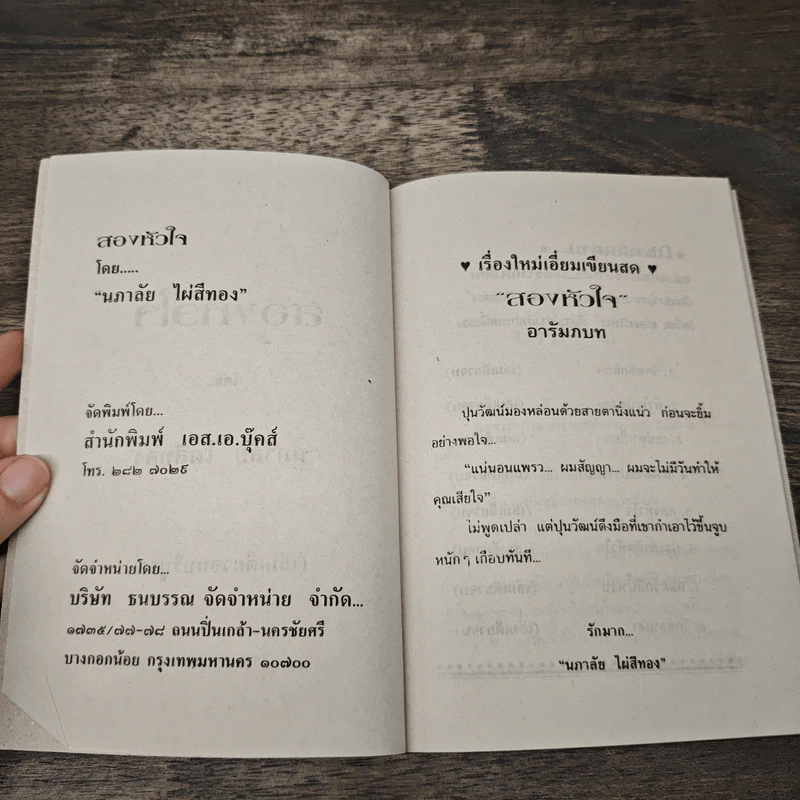 สองหัวใจ
โดย.....
“นภาลัย ไผ่สีทอง”
จัดพิมพ์โดย...
สำนักพิมพ์ เอส.เอ.บุ๊คส์
โทร. ๒๘๒ ๗๐๒๙
จัดจำหน่ายโดย...
บริษัท ธนบรรณ จัดจำหน่าย จำกัด...
๑๗๓๕/๗๗-๗๘ ถนนปิ่นเกล้า-นครชัยศรี
บางกอกน้อย กรุงเทพมหานคร ๑๐๗๐๐
♥ เรื่องใหม่เอี่ยมเขียนสด ♥
“สองหัวใจ”
อารัมภบท
ปุนวัฒน์มองหล่อนด้วยสายตานิ่งแน่ว ก่อนจะยิ้ม
อย่างพอใจ...
“แน่นอนแพรว... ผมสัญญา... ผมจะไม่มีวันทำให้
คุณเสียใจ”
ไม่พูดเปล่า แต่ปุนวัฒน์ดึงมือที่เขากำเอาไว้ขึ้นจูบ
หนักๆ เกือบทันที...
รักมาก...
“นภาลัย ไผ่สีทอง”